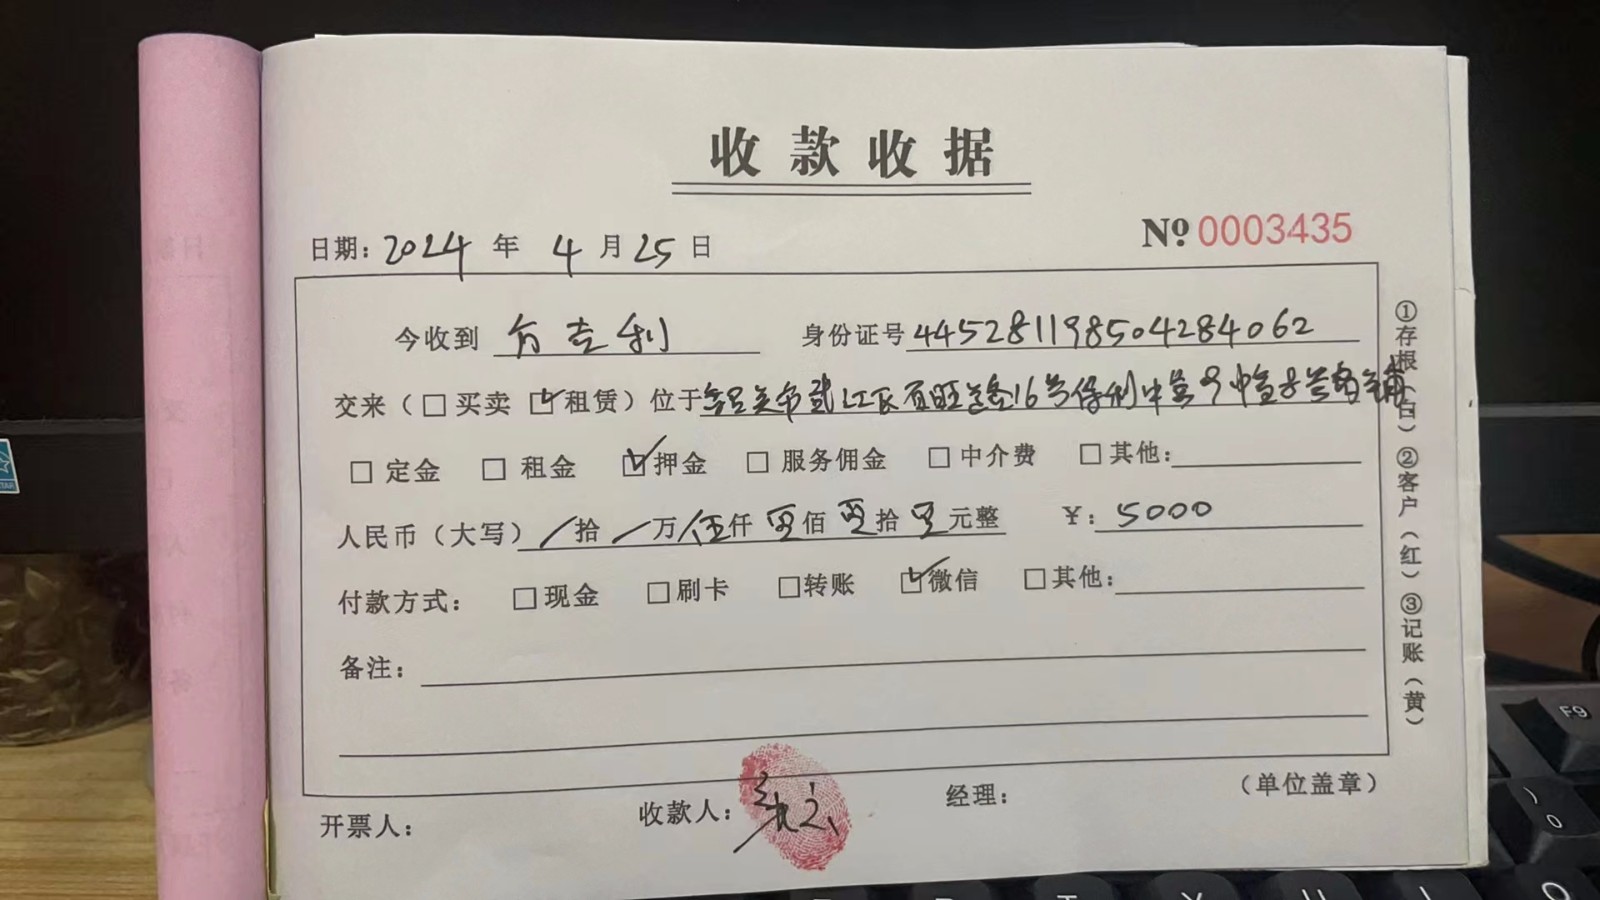 收款收据
日期：2024 年 4 月 25 日
№ 0003435
今收到 方吉利 身份证号 445281198504284062
交来（□买卖 ☑租赁）位于韶关市武江区百旺路16号保利中 商铺
□ 定金 □ 租金 ☑押金 □ 服务佣金 □ 中介费 □ 其他：
人民币（大写） / 拾 / 万 伍 仟 零 佰 零 拾 零 元整 ￥：5000
付款方式： □ 现金 □ 刷卡 □ 转账 ☑微信 □ 其他：
备注：
开票人： 收款人： 经理： （单位盖章）
①存根（白）②客户（红）③记账（黄）
F9
)
0